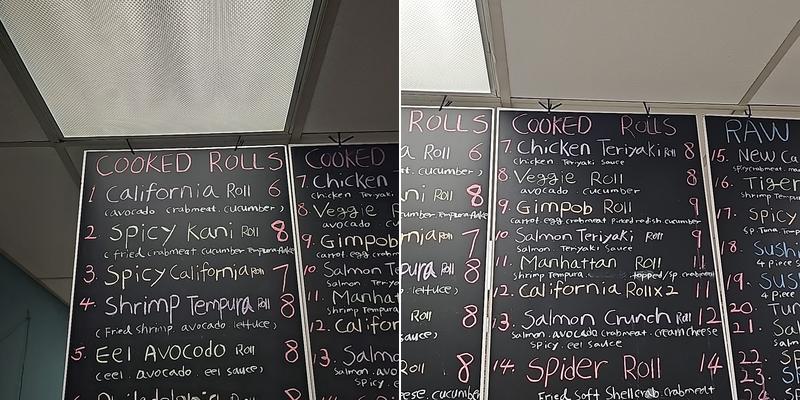 COOKED ROLLS
1. California Roll 6
(avocado. crabmeat. cucumber)
2. Spicy Kani Roll 8
(fried crabmeat. cucumber Tempura flake
3. Spicy California Roll 7
4. Shrimp Tempura Roll 8
(Fried shrimp. avocado. lettuce)
5. Eel AVOCODO Roll 8
(eel. avocado. eel sauce)
COOKED
7. Chicken
chicken Teriyak
8. Veggie
avocado. cu
9. Gimpob
10. Salmon Te
11. Manha
12. Califor
13. Salmo
Salmon. avo
Spicy. e
ROLLS
a Roll 6
cucumber)
ni Roll 8
cucumber Tempura flake
rnia Roll 7
pura Roll 8
lettuce)
Roll 8
sauce)
Roll 8
ese. cucumber
COOKED ROLLS
7. Chicken Teriyaki Roll 8
chicken Teriyaki sauce
8. Veggie Roll 8
avocado. cucumber
9. Gimpob Roll 8
carrot egg crabmeat pickled redish cucumber
10. Salmon Teriyaki Roll 9
Salmon. Teriyaki Sauce
11. Manhattan Roll 11
Shrimp Tempura topped/sp crabmeat
12. California Roll x 2 11
13. Salmon Crunch Roll 12
Salmon. avocado crabmeat. cream cheese
Spicy. eel sauce
14. Spider Roll 14
Fried Soft Shellcrab. Crabmeat
RAW
15. New Ca
16. Tiger
Shrimp Tempu
17. Spicy
Sp. Tuna.
18. Sushi
4 Piece S
19. Sushi
4 Piece
20. Tun
21. Sal
Salm
22. SP
23. SP